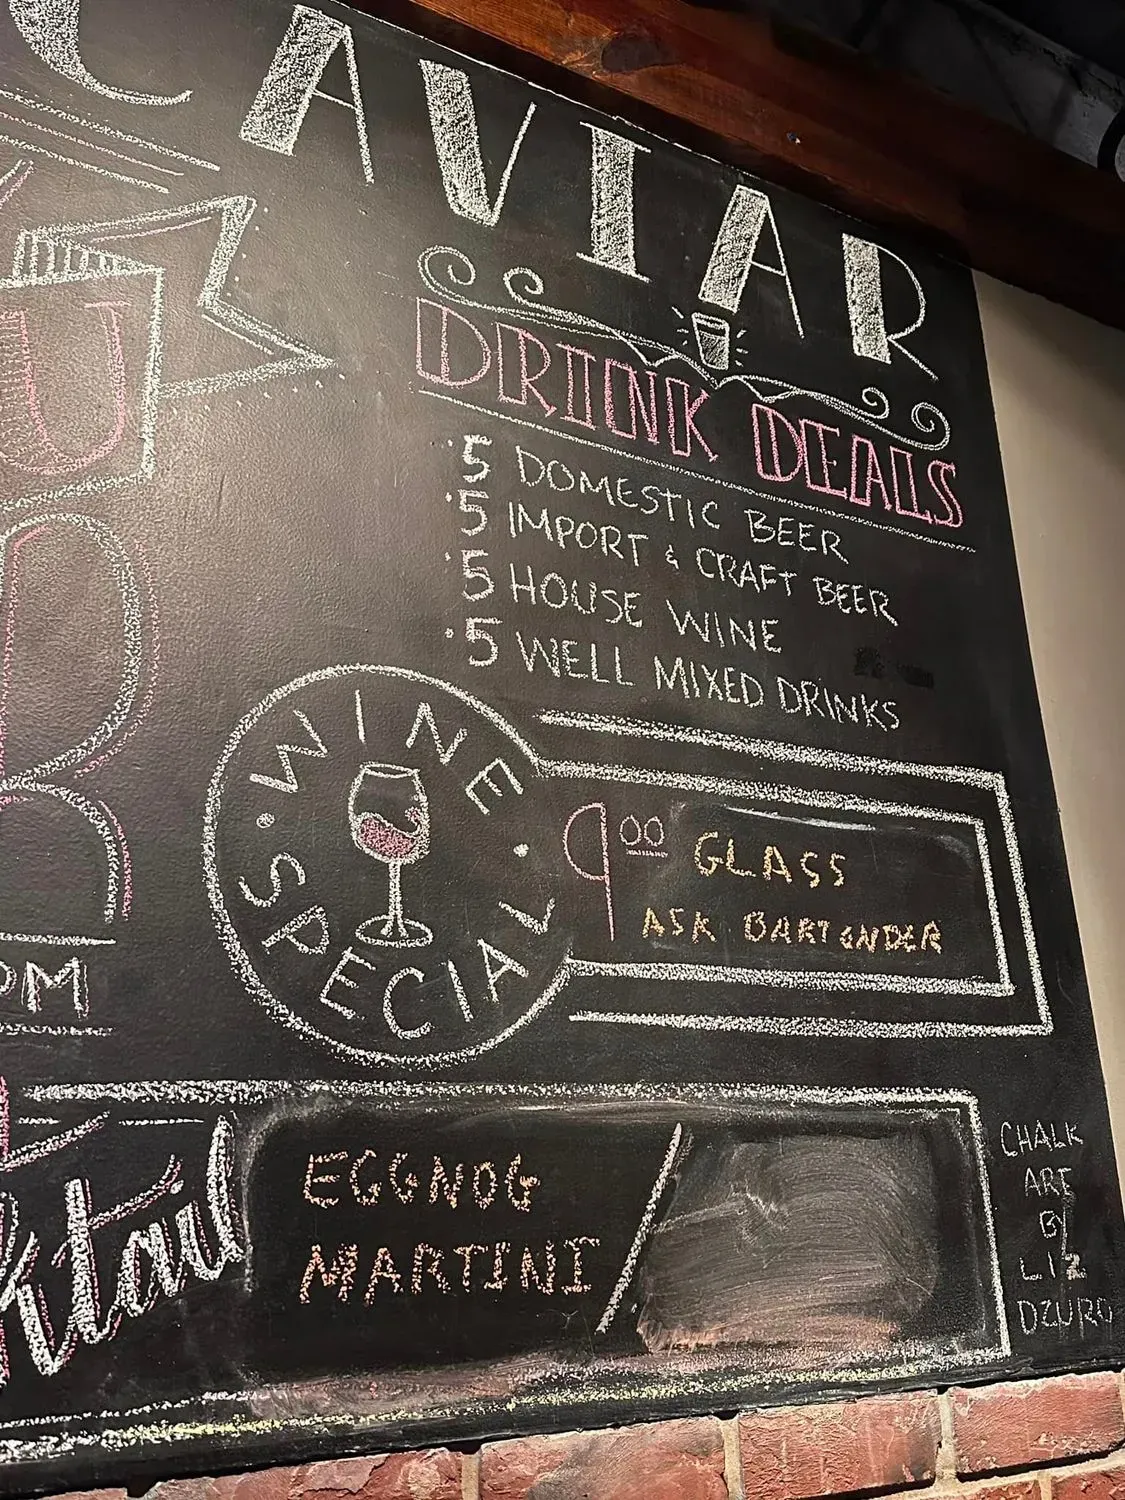 CAVIAR
DRINK DEALS
5 DOMESTIC BEER
5 IMPORT & CRAFT BEER
5 HOUSE WINE
5 WELL MIXED DRINKS
WINE SPECIAL
9 00 GLASS
ASK BARTENDER
EGGNOG
MARTINI /
CHALK
ART
BY
LIZ
DZURO